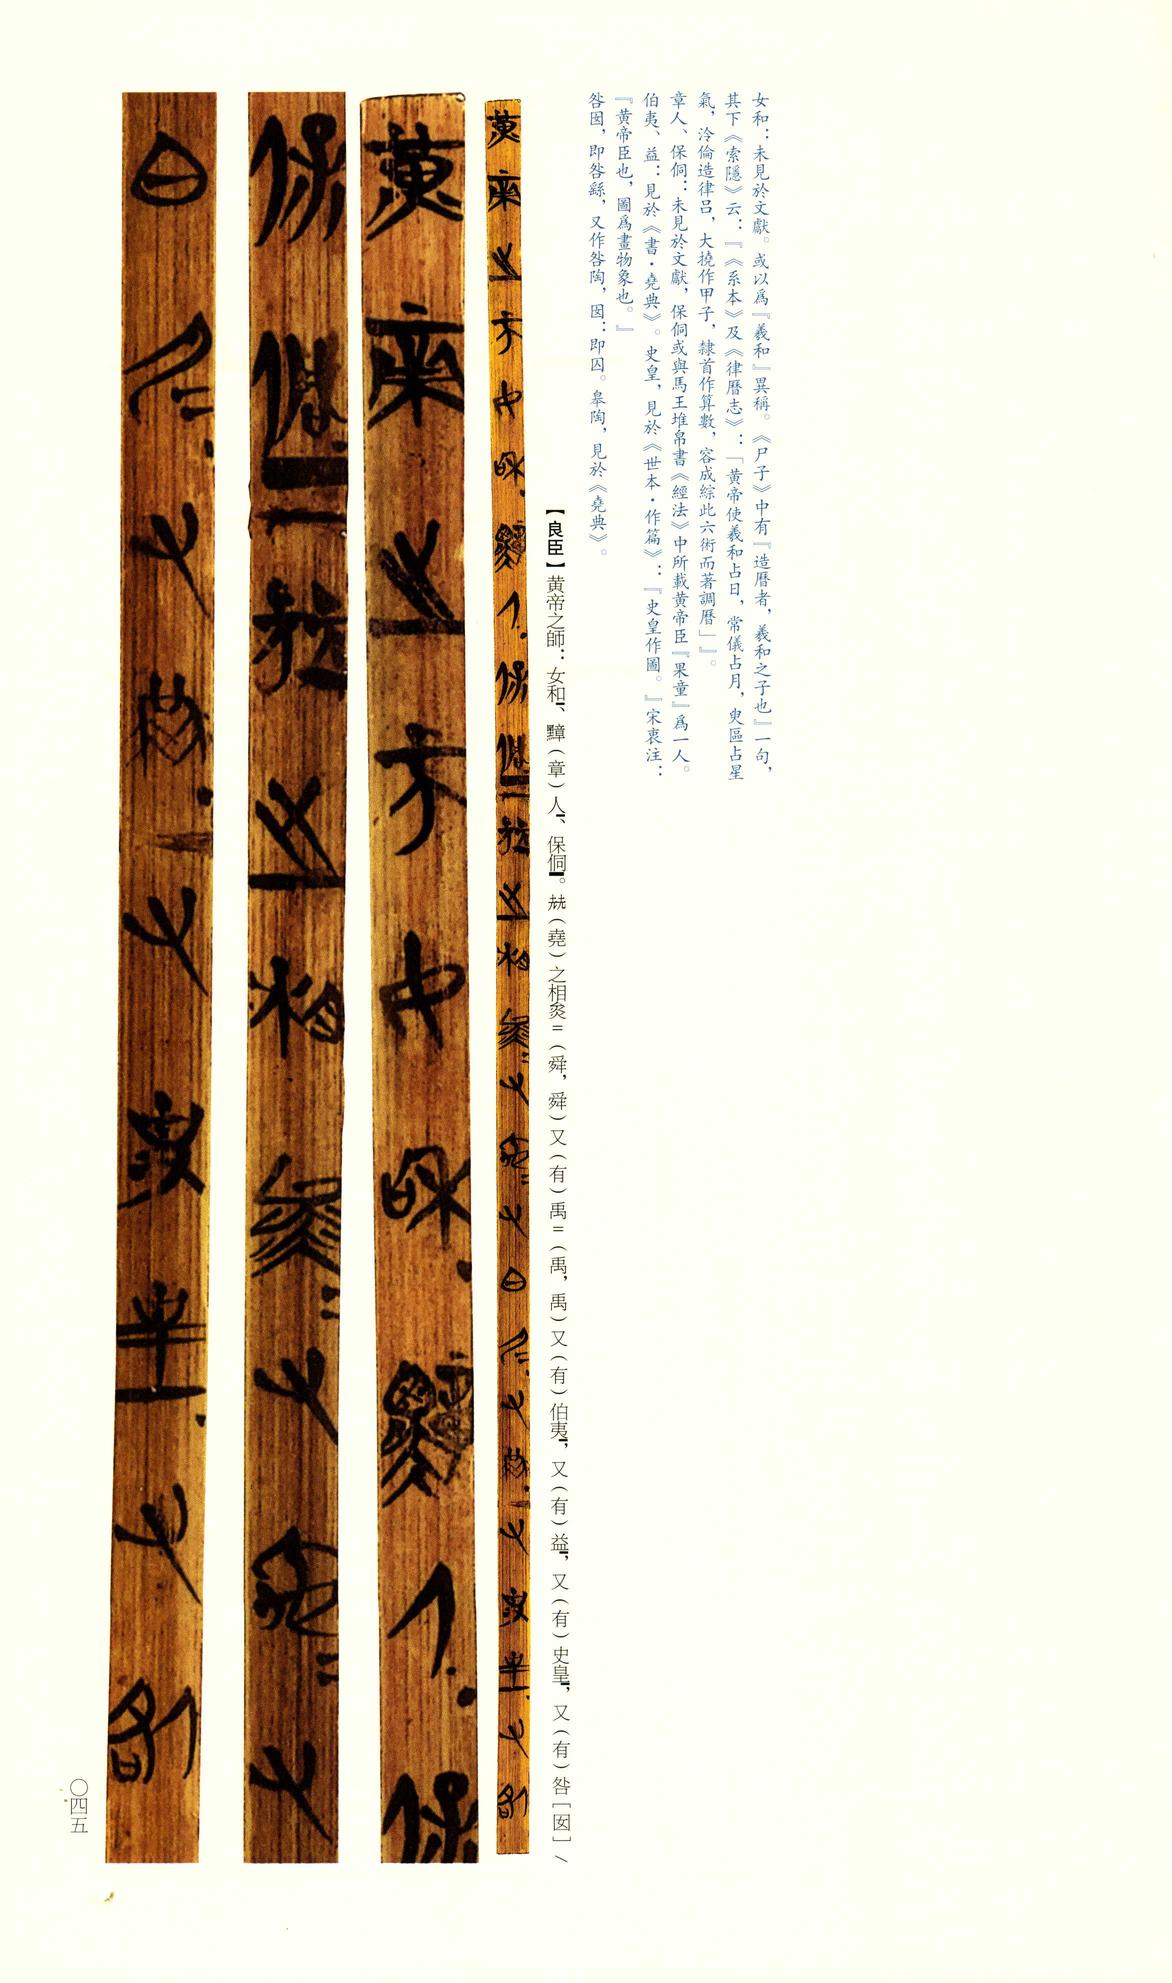 女和：未見於文獻。或以爲『羲和』異稱。《尸子》中有『造曆者，羲和之子也』一句，
其下《索隱》云：『《系本》及《律曆志》：「黃帝使羲和占日，常儀占月，臾區占星
氣，泠倫造律吕，大撓作甲子，隸首作算數，容成綜此六術而著調曆」』。
章人、保侗：未見於文獻，保侗或與馬王堆帛書《經法》中所載黄帝臣『果童』爲一人。
伯夷、益：見於《書·堯典》。史皇，見於《世本·作篇》：『史皇作圖。』宋衷注：
『黄帝臣也，圖爲畫物象也。』
咎囡，即咎繇，又作咎陶，囡：即囚。皋陶，見於《堯典》。
【良臣】黄帝之師：女和、黷（章）人、保侗。㚁（堯）之相㚇＝（舜，舜）又（有）禹＝（禹，禹）又（有）伯夷，又（有）益，又（有）史皇，又（有）咎［囡］／
〇四五